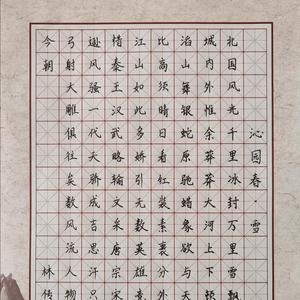 沁园春·雪
北国风光千里冰封万里雪飘
城内外惟余莽莽大河上下顿
滔山舞银蛇原驰蜡象欲与天
比高须晴日看红装素裹分外
江山如此多娇引无数英雄竞
惜秦王汉武略输文采唐宗宋
逊风骚一代天骄成吉思汗只
弓射大雕俱往矣数风流人物
今朝
林传